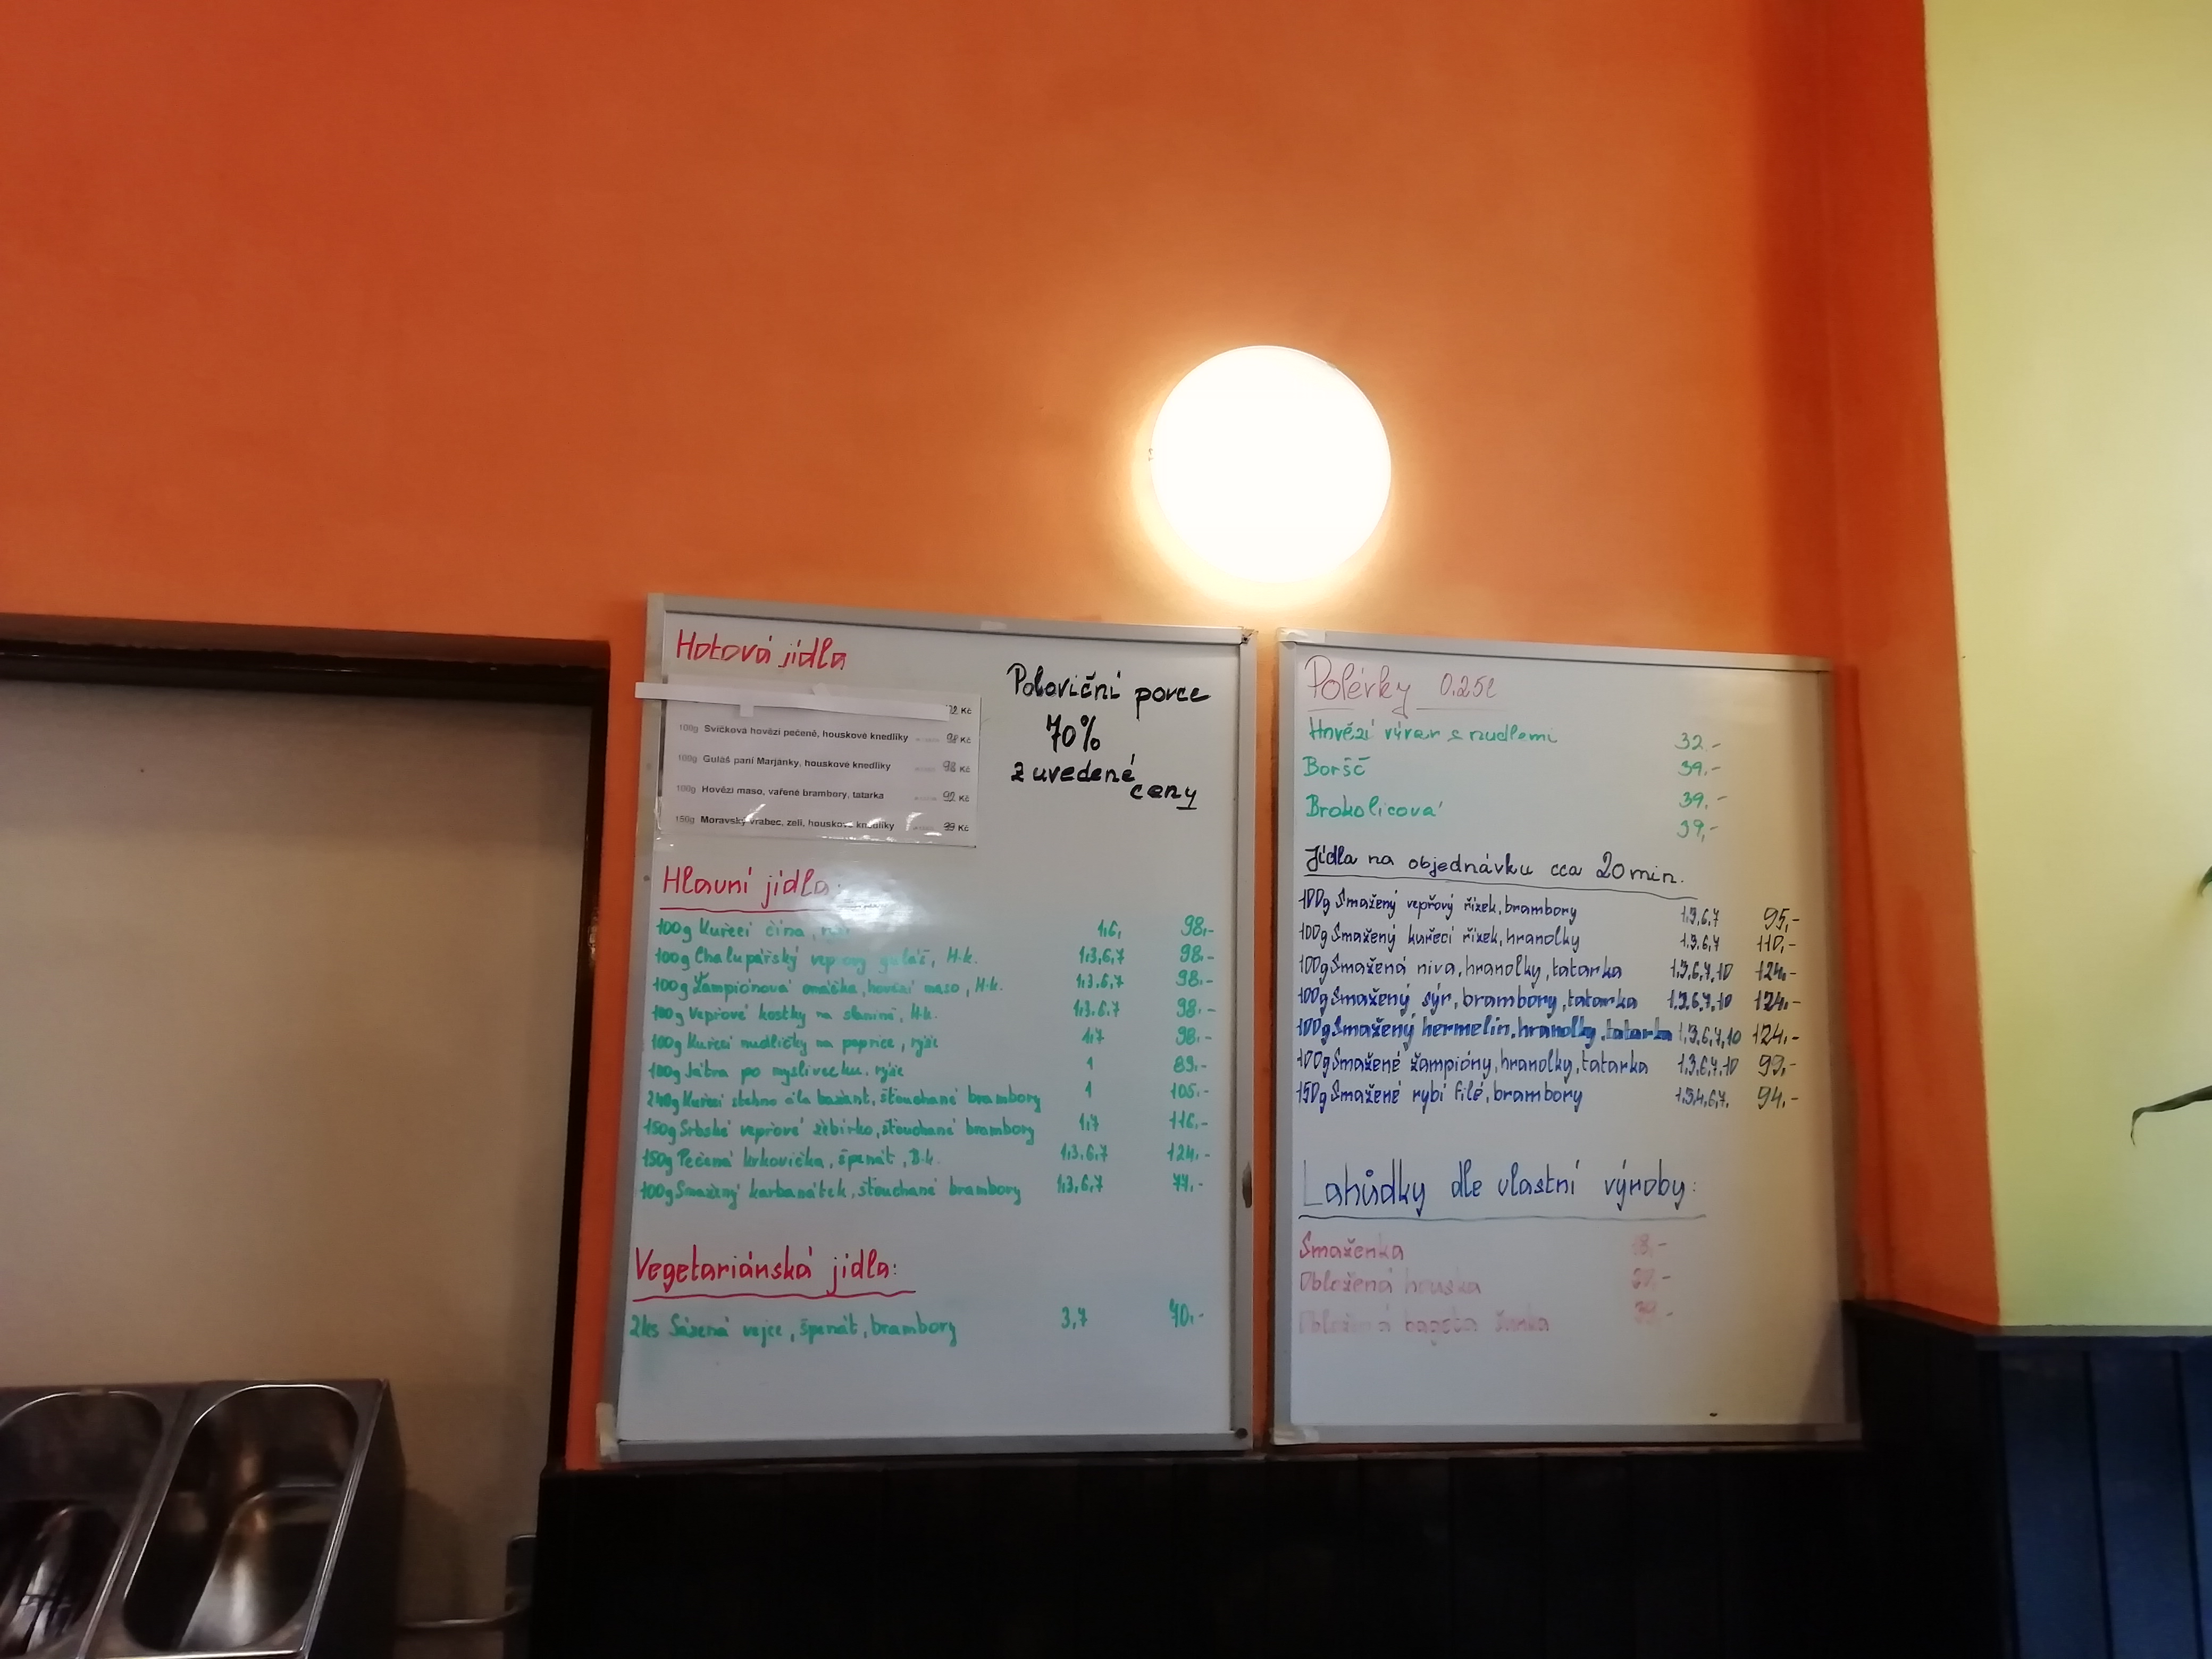 Hotová jídla
Kč
100g Svíčková hovězí pečeně, houskové knedlíky 98 Kč
100g Guláš paní Marjánky, houskové knedlíky 98 Kč
100g Hovězí maso, vařené brambory, tatarka 92 Kč
150g Moravský vrabec, zelí, houskové knedlíky 99 Kč
Poloviční porce
70%
z uvedené
ceny
Hlavní jídla:
100g Kuřecí čína, 1,6, 98,-
100g Chalupářský vepřový guláš, H.k. 1,3,6,7 98,-
100g Žampiónová omáčka, hovězí maso, H.k. 1,3,6,7 98,-
100g Vepřové kostky na slanině, H.k. 1,3,6,7 98,-
100g Kuřecí nudličky na paprice, rýže 1,7 98,-
100g Játra po myslivecku, rýže 1 89,-
240g Kuřecí stehno ála bažant, šťouchané brambory 1 105,-
150g Srbské vepřové žebírko, šťouchané brambory 1,7 116,-
150g Pečená krkovička, špenát, B.k. 1,3,6,7 124,-
100g Smažený karbanátek, šťouchané brambory 1,3,6,7 77,-
Vegetariánská jídla:
2ks Sázená vejce, špenát, brambory 3,7 70,-
Polévky 0,25l
Hovězí vývar s nudlemi 32,-
Boršč 39,-
Brokolicová 39,-
39,-
Jídla na objednávku cca 20min.
100g Smažený vepřový řízek, brambory 1,3,6,7 95,-
100g Smažený kuřecí řízek, hranolky 1,3,6,7 110,-
100g Smažená niva, hranolky, tatarka 1,3,6,7,10 124,-
100g Smažený sýr, brambory, tatarka 1,3,6,7,10 124,-
100g Smažený hermelín, hranolky, tatarka 1,3,6,7,10 124,-
100g Smažené žampióny, hranolky, tatarka 1,3,6,7,10 99,-
150g Smažené rybí filé, brambory 1,3,4,6,7, 94,-
Lahůdky dle vlastní výroby:
Smaženka
Obložená houska
Obložená bageta šunka